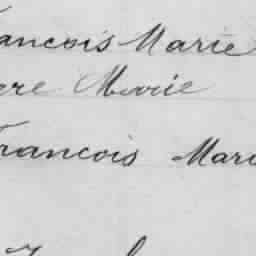 rancois Marie
ere Marie
Francois Mari